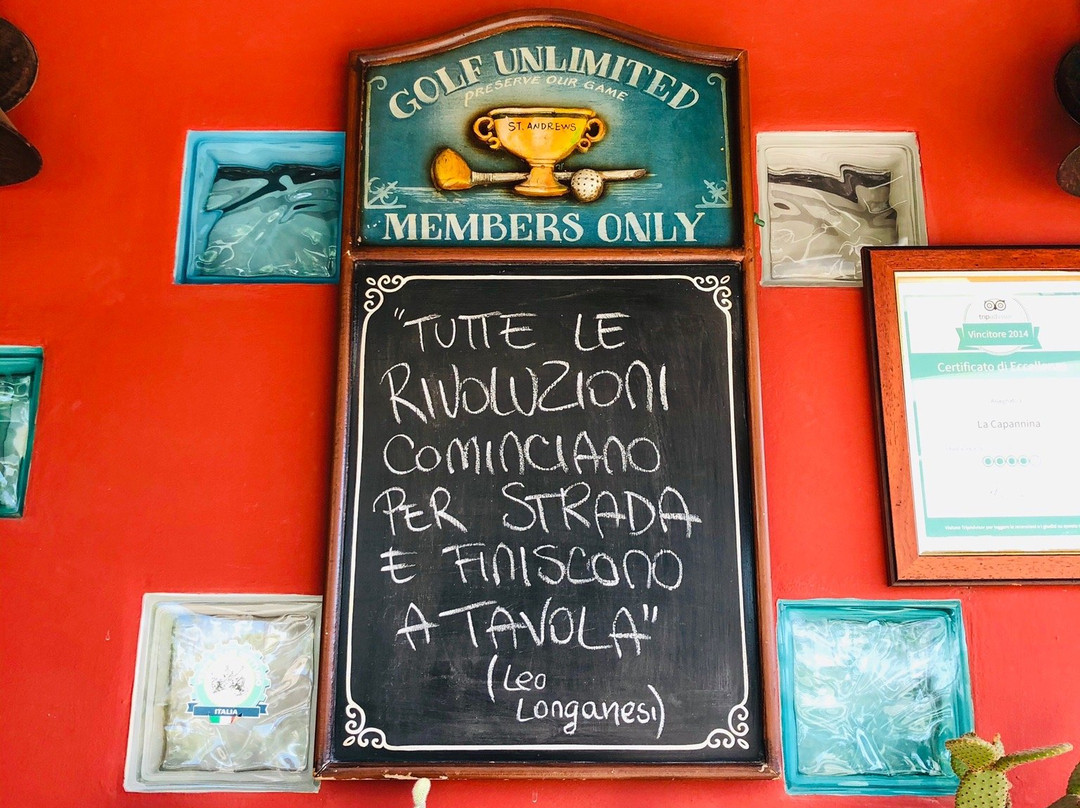 GOLF UNLIMITED
PRESERVE OUR GAME
ST. ANDREWS
MEMBERS ONLY
"TUTTE LE
RIVOLUZIONI
COMINCIANO
PER STRADA
E FINISCONO
A TAVOLA"
(Leo
Longanesi)
tripadvisor
Vincitore 2014
Certificato di
La Capannina
ITALIA